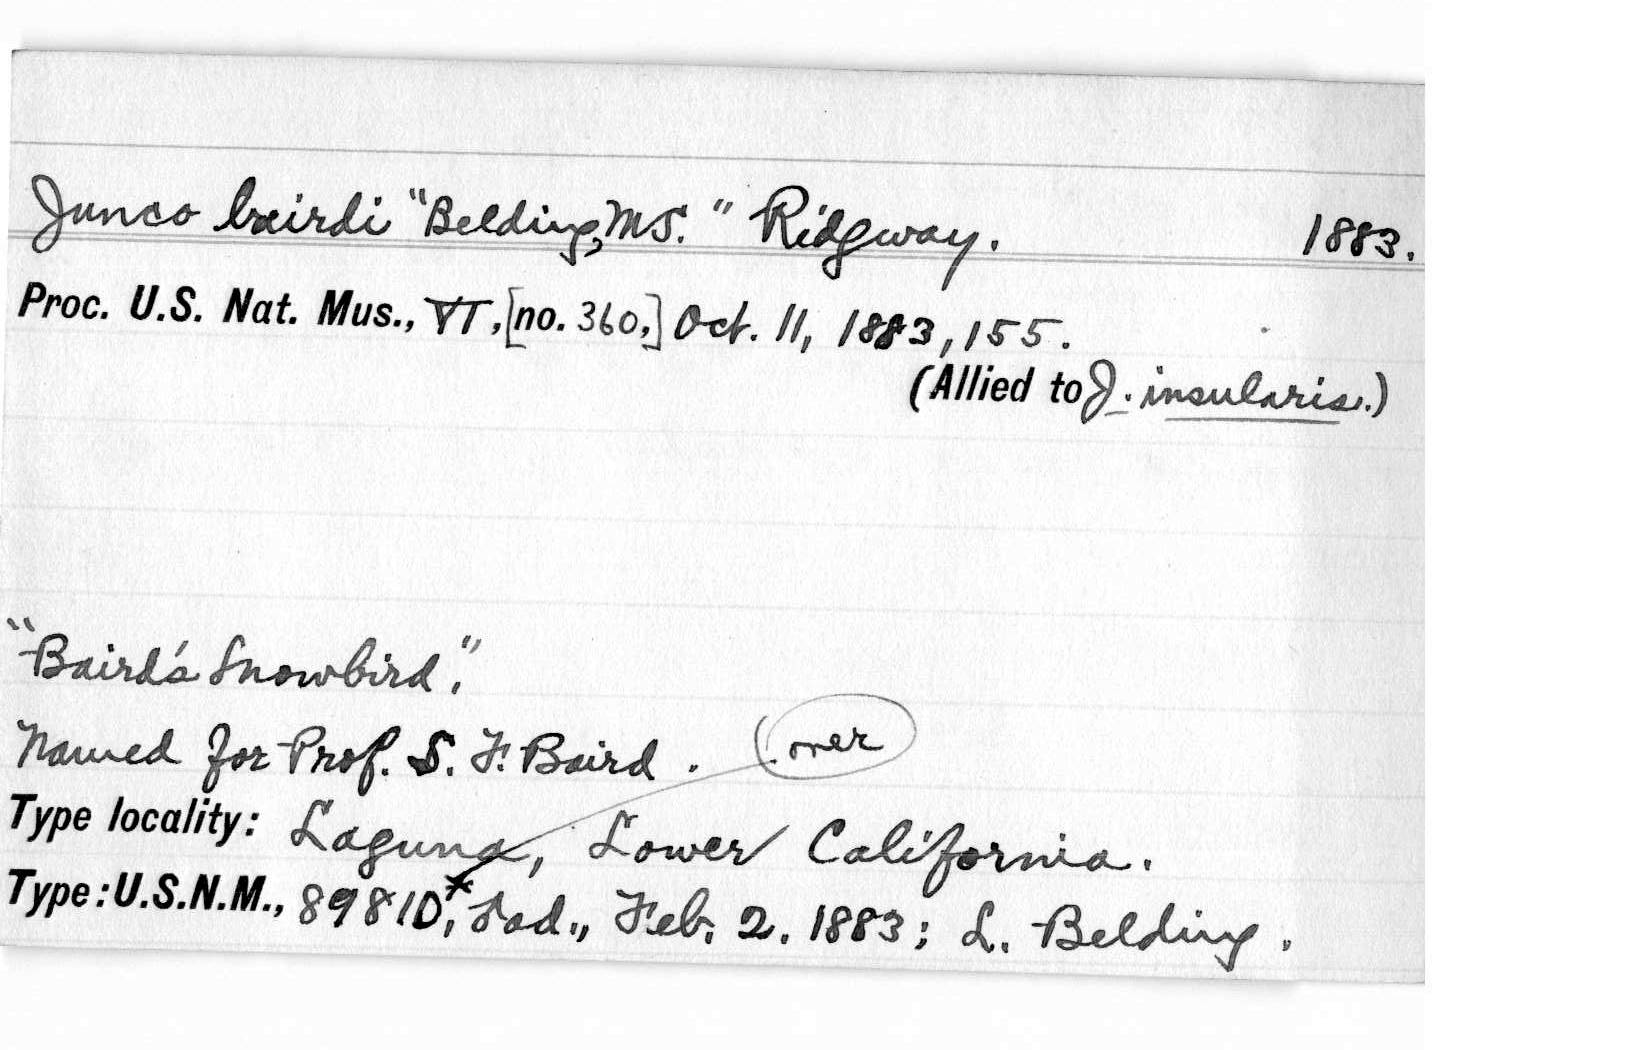 Junco bairdi "Belding, MS." Ridgway. 1883.
Proc. U.S. Nat. Mus., VI, [no. 360,] Oct. 11, 1883, 155.
(Allied to J. insularis.)
"Baird's Snowbird."
Named for Prof. S. F. Baird. (over
Type locality: Laguna, Lower California.
Type: U.S.N.M., 89810,* ad., Feb. 2. 1883; L. Belding.